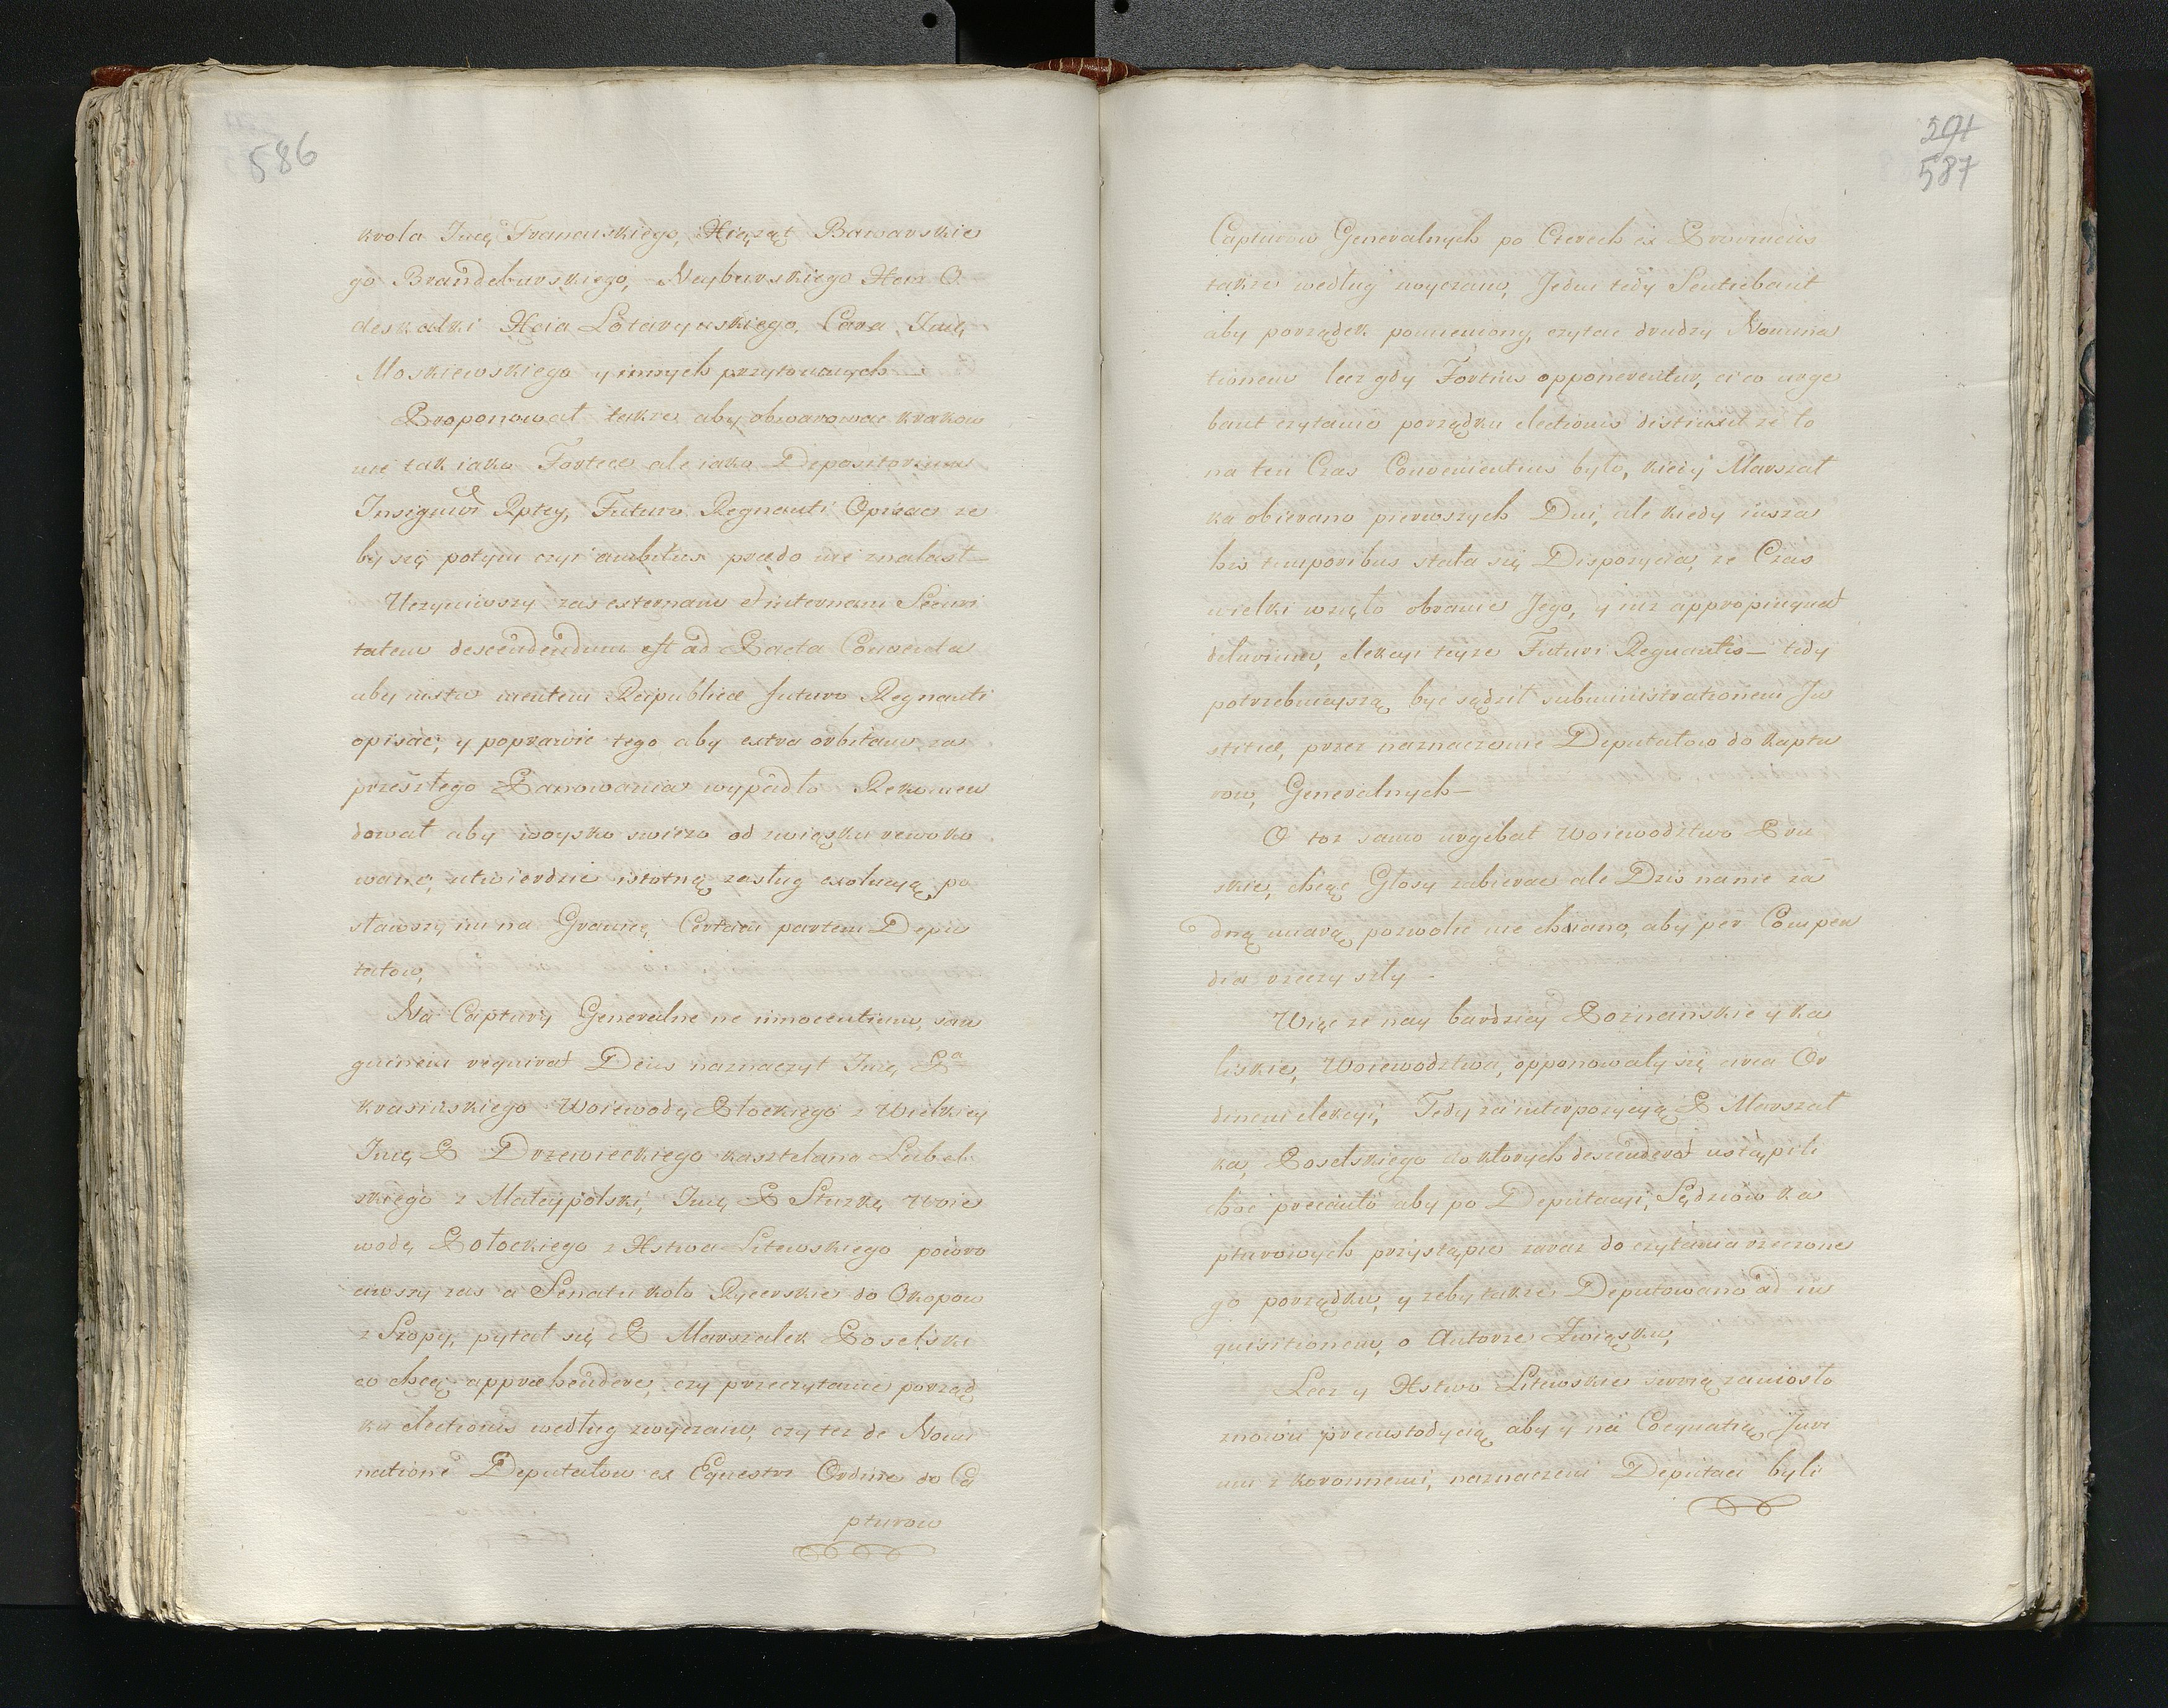 586
krola Jmci Francuskiego, Xiąząt Bawarskie
go Brandeburskiego, Neyburskiego Hem O
deskalki Xcia Lotaryńskiego, Cara Jmci
Moskiewskiego y innych przytomnych —
Proponował takze aby obwarowac krakow
nie tak iako Fortece ale iako Depositorium
Insignior Rptey, Futuro Regnanti Opisac ze
by się potym czyi ambitus praedo nie znalast —
Uczyniwszy zas externam et internam Securi
tatem descendendum est ad Pacta Conventa
aby iusta mentem Reipublicæ futuro Regnanti
opisac, y poprawic tego aby extra orbitam za
przeszłego Panowania wypadło Rekomen
dował aby woysko swiezo od związku rewoko
wane, utwierdzic istotną zasług exolucyą po
stawszy im na Granicę Certam partem Depu
tatow,
Na Captury Generalne ne innocentium, san
guinem requirat Deus naznaczył Jmci Pa
krasinskiego Woiewodę Płockiego z Wielkiey
Jmci P Drzewieckiego kasztelana Lubel
skiego z Małeypolski, Jmci P Słuzkę Woie
wodę Połockiego z Xstwa Litewskiego powro
ciwszy zas a Senatu koło Rycerskie do Okopow
z Szopy, pytał się P Marszałek Poselski
co chcą appræhendere, czy przeczytanie porząd
ku electionis według zwyczaiu, czy tez de Nomi
natione Deputatow ex Equestri Ordine do Ca
pturow
591
587
Capturow Generalnych po Czerech ex Provinciis
takze według zwyczaiu, Jedni tedy Sentiebant
aby porządek pomieniony, czytac drudzy Nomina
tionem lecz gdy Fortius opponerentur, ci co urge
bant czytanie porządku electionis distinxit ze to
na ten Czas Convenientius było, kiedy Marszał
ka obierano pierwszych Dni, ale kiedy insza
his temporibus stała się Disporycia, ze Czas
wielki wzięło obranie Jego, y iuz appropinquat
diluvium, elekcyi teyze Futuri Regnantis — tedy
potrzebnieyszą byc sądził subministrationem Ju
stitiæ, przez naznaczenie Deputatow do Kaptu
row, Generalnych —
O toz samo urgebat Woiewodztwo Pru
skie, chcąc Głosy zabierac ale Dzis na nie za
dną miarą pozwolic nie chciano, aby per Compen
dia rzeczy szły —
Więc ze nay bardziey Poznanskie y ka
liskie, Woiewodztwa, opponowały się circa Or
dinem elekcyi, Tedy za interpozycyą P Marszał
ka, Poselskiego do ktorych descenderat ustąpili
choc precauto aby po Deputacyi, Sędziow ka
pturowych przystąpic zaraz do czytania rzeczone
go porządku, y zeby takze Deputowano ad in
quisitionem, o Autorze Związku,
Lecz y Xstwo Litewskie swoią zaniosło
znowu precustodycią aby y na Coequatią Juri
um z koronnemi, naznaczeni Deputaci byli